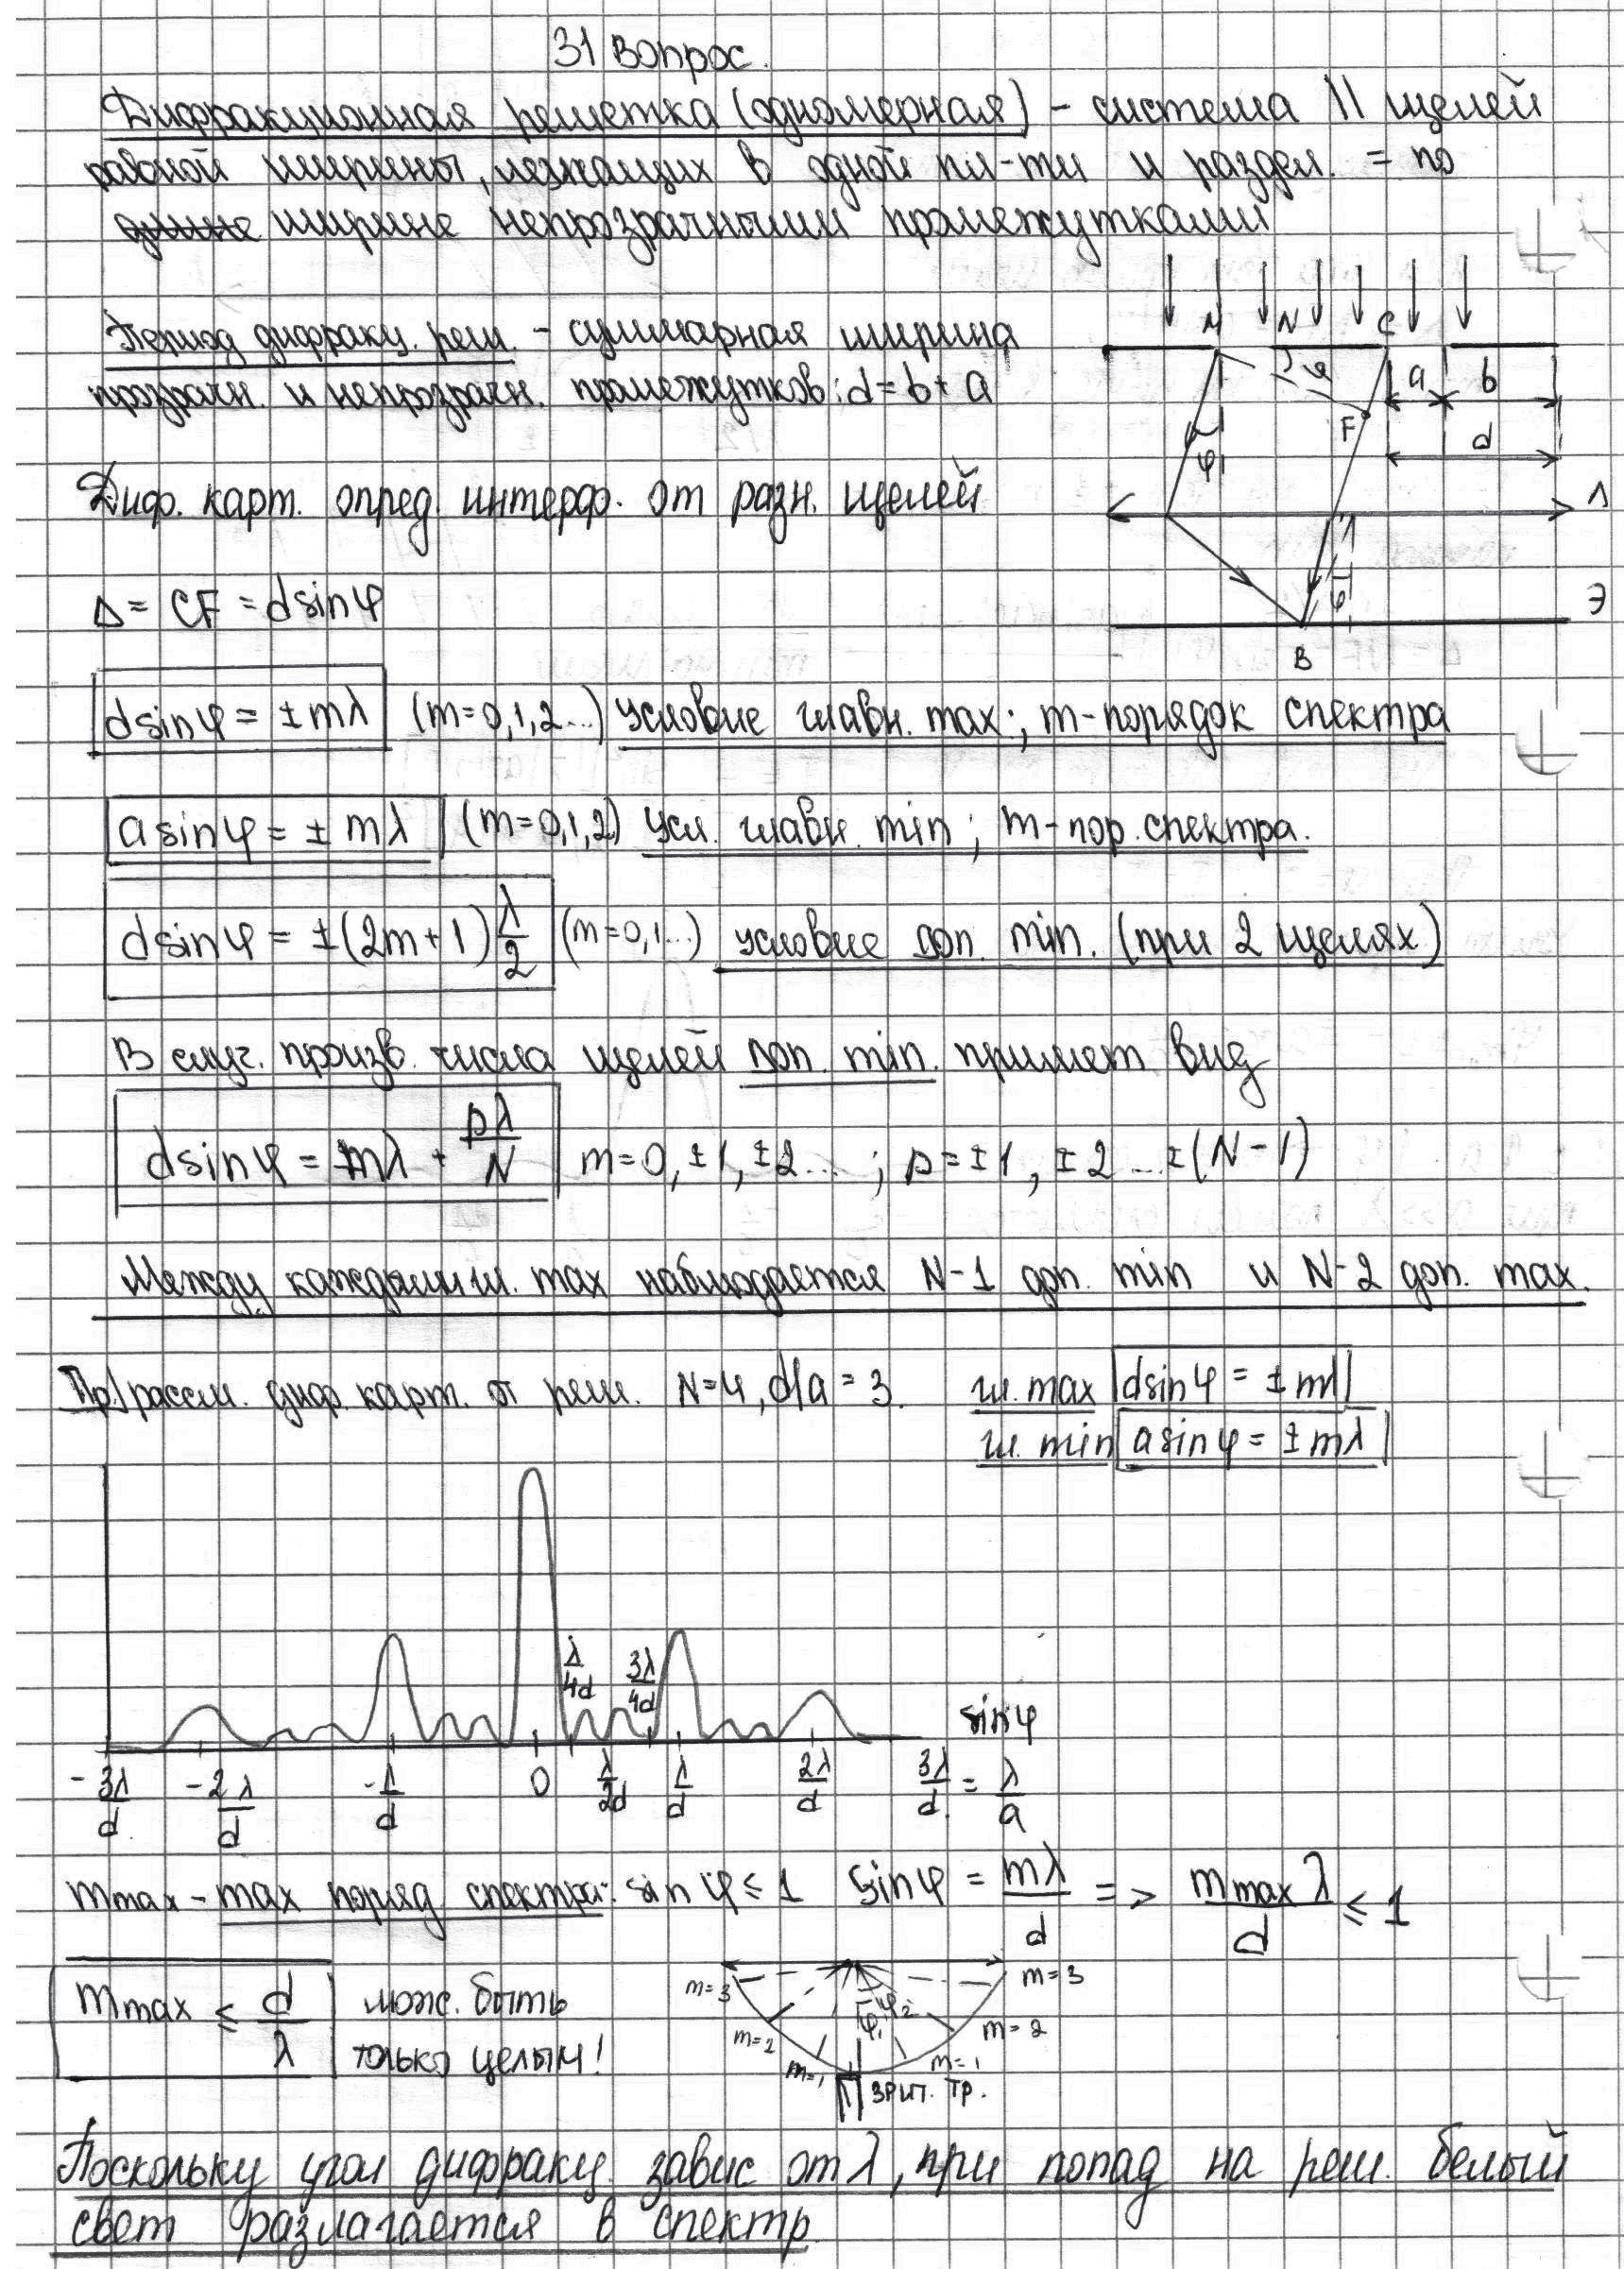 31 вопрос.
Дифракционная решетка (одномерная) - система || щелей
равной ширины, лежащих в одной пл-ти и раздел. = по
длине ширине непрозрачными промежутками
Период дифракц. реш. - суммарная ширина
прозрачн. и непрозрачн. промежутков: d = b + a
M N C
φ a b
F d
φ
Л
φ
Э
B
Диф. карт. опред. интерф. от разн. щелей
Δ = CF = d sinφ
d sinφ = ± mλ (m=0,1,2...) условие главн. max; m-порядок спектра
a sinφ = ± mλ (m=0,1,2) усл. главн. min; m-пор. спектра.
d sinφ = ±(2m+1) λ/2 (m=0,1...) условие доп. min. (при 2 щелях)
В случ. произв. числа щелей доп. min. примет вид
d sinφ = mλ + pλ/N m=0, ±1, ±2...; p=±1, ±2 ...±(N-1)
Между каждыми гл. max наблюдается N-1 доп. min и N-2 доп. max.
Пр) рассм. диф. карт. от реш. N=4, d/a = 3. гл. max d sinφ = ± mλ
гл. min a sinφ = ± mλ
λ/4d 3λ/4d
sinφ
-3λ/d -2λ/d -λ/d 0 λ/2d λ/d 2λ/d 3λ/d = λ/a
m max - max поряд спектра: sin φ ≤ 1 sinφ = mλ/d => m max λ/d ≤ 1
m max ≤ d/λ мож. быть
только целым!
m=3 m=3
φ₂
φ₁
m=2 m=2
m=1 m=1
зрит. тр.
Поскольку угол дифракц. завис от λ, при попад на реш. белый
свет разлагается в спектр